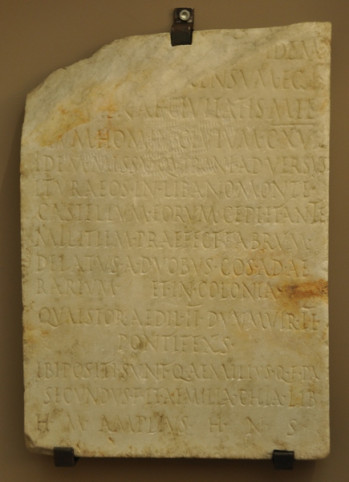 IDEM
CENSVM EGI
CIVITATIS MIL
LIVM HOMIN CIVIVM CXVII
IDEM MISSV QVIRINI ADVERSVS
ITVRAEOS IN LIBANO MONTE
CASTELLVM EORVM CEPI ET ANTE
MILITIEM PRAEFECT FABRVM
DELATVS A DVOBVS COS AD AE
RARIVM ET IN COLONIA
QVAESTOR AEDIL II DVVMVIR II
PONTIFEXS
IBI POSITI SVNT Q AEMILIVS Q F PAL
SECVNDVS F ET AEMILIA CHIA LIB
H M AMPLIVS H N S